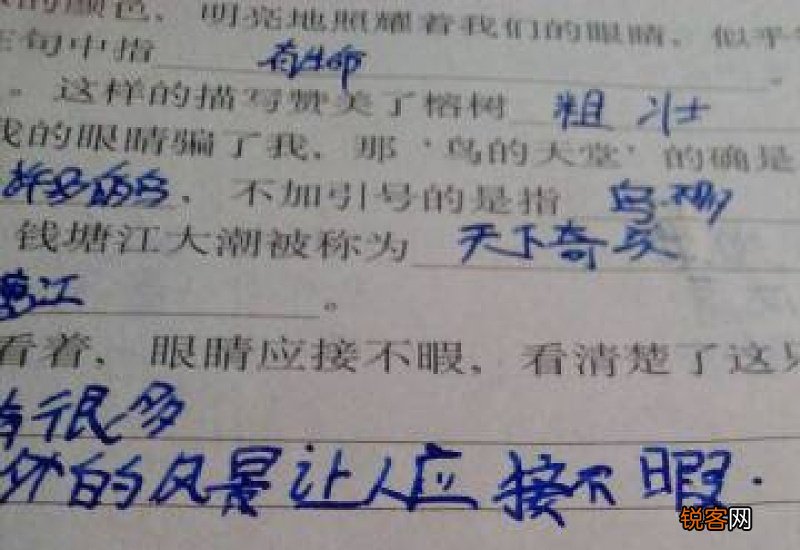 的颜色，明亮地照耀着我们的眼睛，似乎
句中指 有生命 。
。这样的描写赞美了榕树 粗壮
我的眼睛骗了我，那‘鸟的天堂’的确是
许多的鸟，不加引号的是指 鸟
钱塘江大潮被称为 天下奇
江 。
看着，眼睛应接不暇，看清楚了这只
有很多
外的风景让人应接不暇.
锐客网